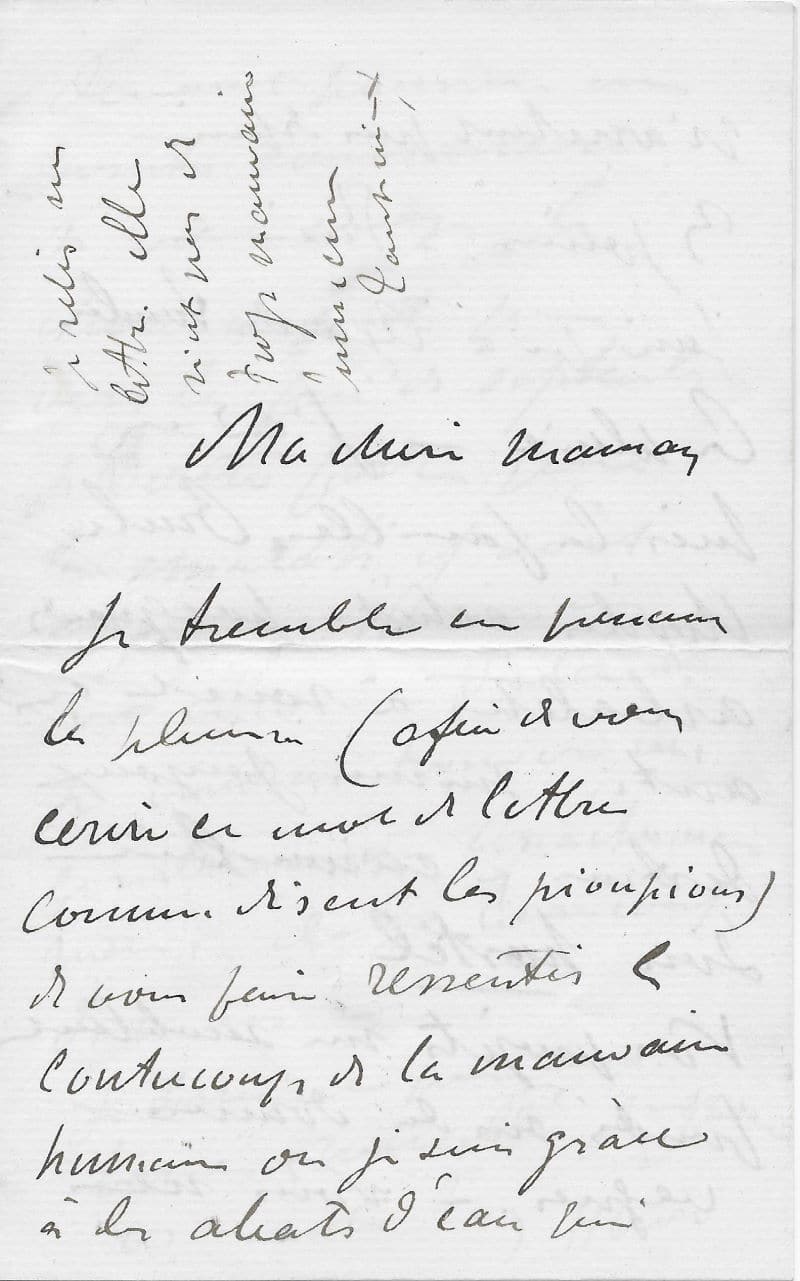 je relis ma
lettre. elle
n'est pas de
trop mauvaise
humeur
Ma chère maman
Je tremble en prenant
la plume (afin de vous
ecrire ce mot de lettre
comme disent les pioupious)
de vous faire ressentir le
contrecoup de la mauvaise
humeur ou je suis grâce
à des abats d'eau qui